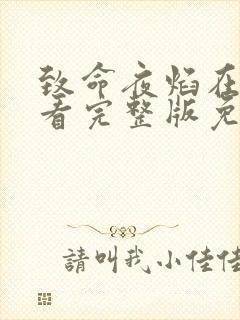 致命夜焰在
看完整版免
請叫我小佳佳